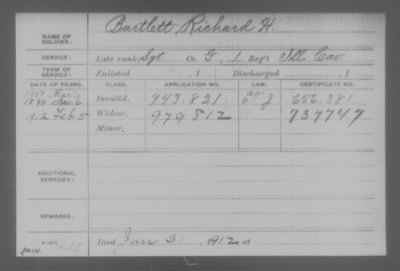 NAME OF SOLDIER: Bartlett, Richard H.
SERVICE: Late rank, Sgt Co. G, 1 Reg't Ill Cav
TERM OF SERVICE: Enlisted , 1 Discharged , 1
DATE OF FILING. CLASS. APPLICATION NO. LAW. CERTIFICATE NO.
1890 Invalid, 943.821 J 656.381
1912 Feb 5 Widow, 979812 737747
Minor,
ADDITIONAL SERVICES:
REMARKS:
Died Jan 31, 1912, at